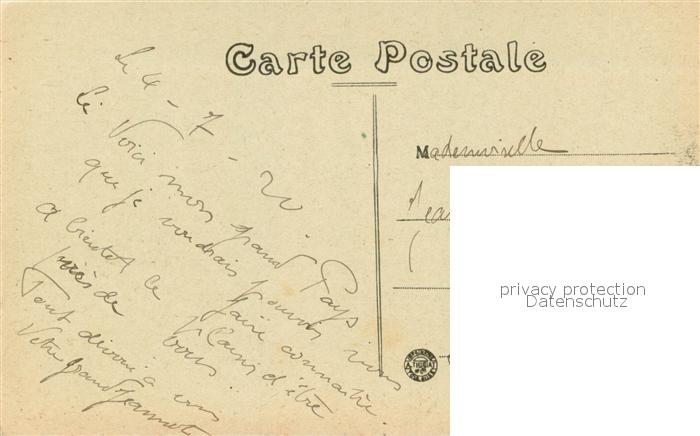 Carte Postale
Le 4 - 7 - 20.
Voici mon grand Pays
que je voudrais pouvoir vous
faire connaître
a bientôt le plaisir d'être
près de vous.
Tout dévoué à vous
Votre grand
Mademoiselle
privacy protection
Datenschutz